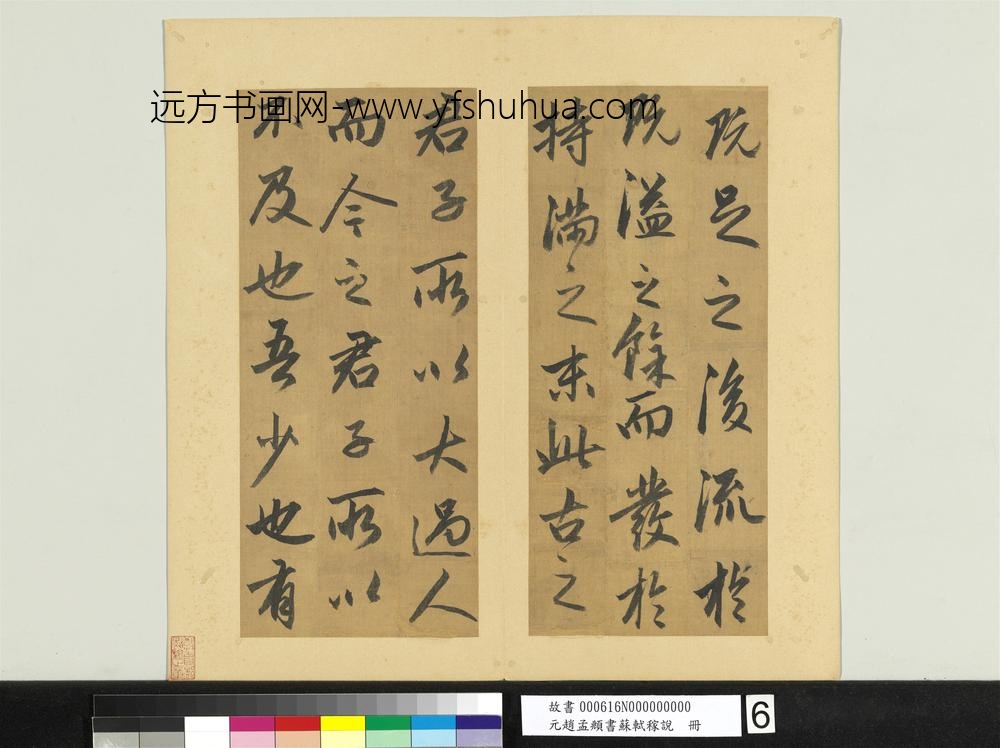 远方书画网-www.yfshuhua.com
既足之後流於
既溢之餘而發於
持滿之末此古之
君子所以大過人
而今之君子所以
不及也吾少也有
故書 000616N000000000
元趙孟頫書蘇軾稼說 冊
6